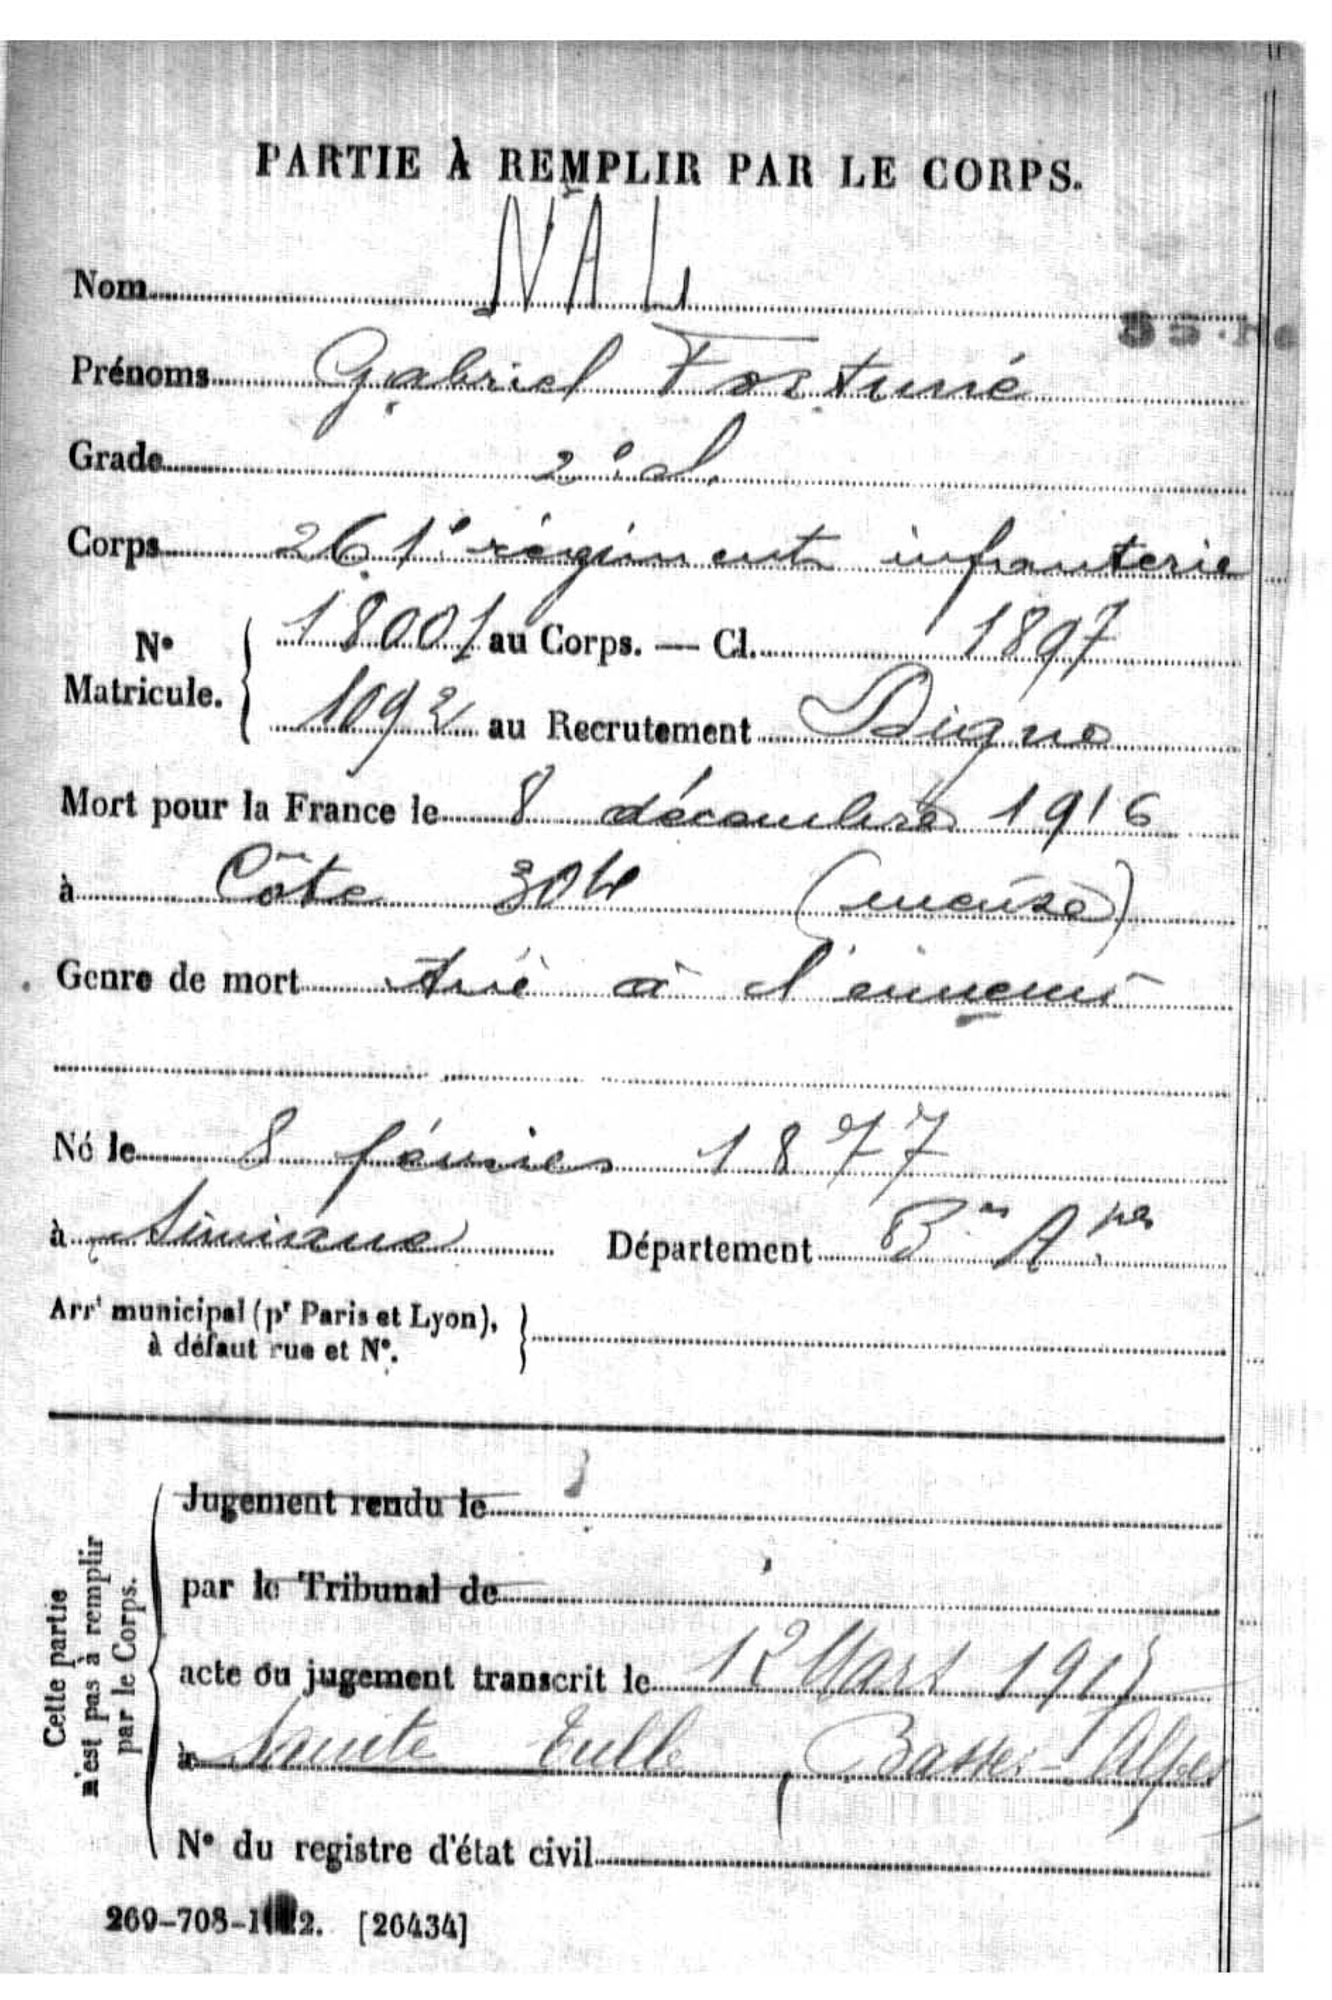 PARTIE À REMPLIR PAR LE CORPS.
Nom NAL
Prénoms Gabriel Fortuné
Grade 2e cl.
Corps 261e régiment infanterie
N° Matricule. { 18001 au Corps. — Cl. 1897
1092 au Recrutement Digne
Mort pour la France le 8 décembre 1916
à Côte 304 (meuse)
Genre de mort tué à l'ennemi
Né le 8 février 1877
à Simiane Département Bses Alpes
Arrt municipal (pr Paris et Lyon),
à défaut rue et N°.
Cette partie
n'est pas à remplir
par le Corps.
Jugement rendu le
par le Tribunal de
acte ou jugement transcrit le 12 Mars 1917
à Sainte Tulle (Basses-Alpes
N° du registre d'état civil
[26434]